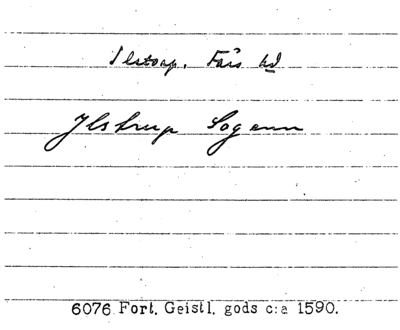 Ilstorp. Färs hd
Jlstrup Sogenn
6076 Fort. Geistl. gods c:a 1590.